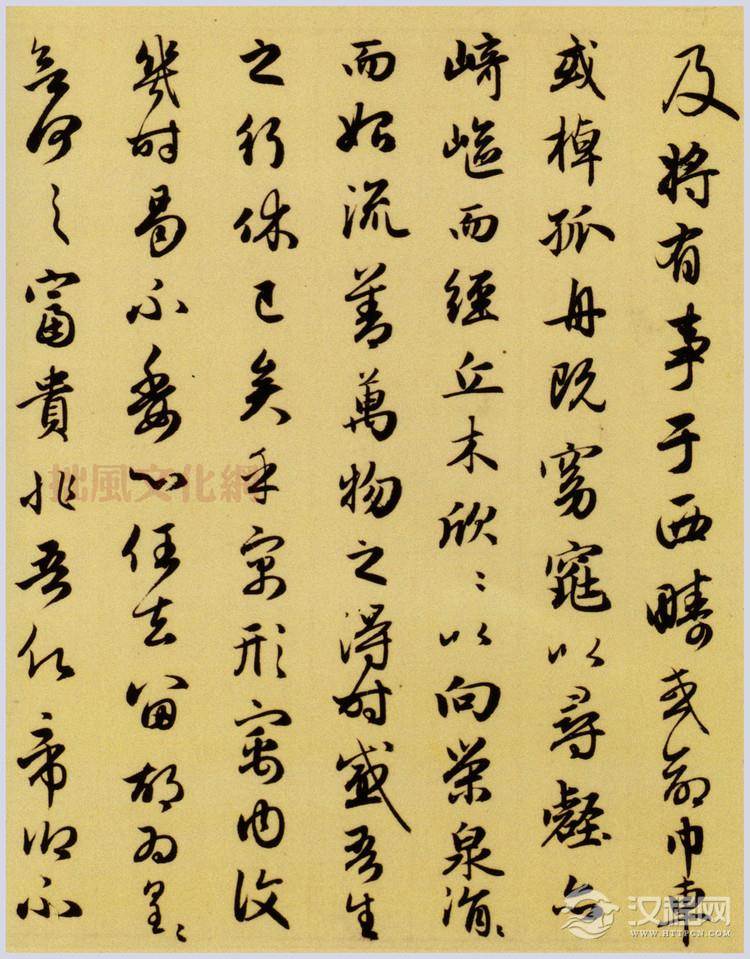 及將有事于西疇或命巾車
或棹孤舟既窈窕以尋壑亦
崎嶇而經丘木欣〻以向榮泉涓〻
而始流善萬物之得時感吾生
之行休已矣乎寓形寓內復
幾時曷不委心任去留胡為遑〻
何之富貴非吾願帝鄉不
拙風文化網
汉程网
WWW.HTTPCN.COM